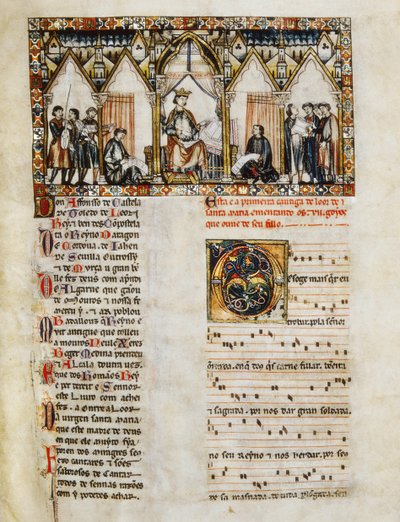 Don Affonso de Castela
de Toledo de Leon
Rey e ben des Compostela
ta o Reyno Daragon
De Cordova de Jahen
de Sevilla outrossy
e de Murça u gran ben
lle fez deus com aprendi
Do Algarve que gãou
de Mouros e nossa fe
meteu y. e ar poblou
Badallouz que Reyno é
muit antigue que tolleu
a mouros Neul e Xerez
Beger Medina prendeu
e Alcala doutra uez.
Que dos Romãos Rey
é per dereit e Sennor
este Liuro com achei
fez a onrr e a loor
Da uirgen santa maria
que este madre de deus
en que ele muyto fia
poren dos miragres seus
Fezo cantares e sões
saborosos de Cantar
todos de sennas razões
com y podedes achar.
Esta e a primeira cantiga de loor de
santa maria ementando os .VII. goyos
que ouue de seu fillo.
Des oge mais quer eu
trobar. pola sennor
onrrada. en que deus quis carne fillar. bẽeita
e sagrada. por nos dar gran soldada.
no seu Reyno e nos herdar. por seus
de sa masnada. de uida perlongada. sen